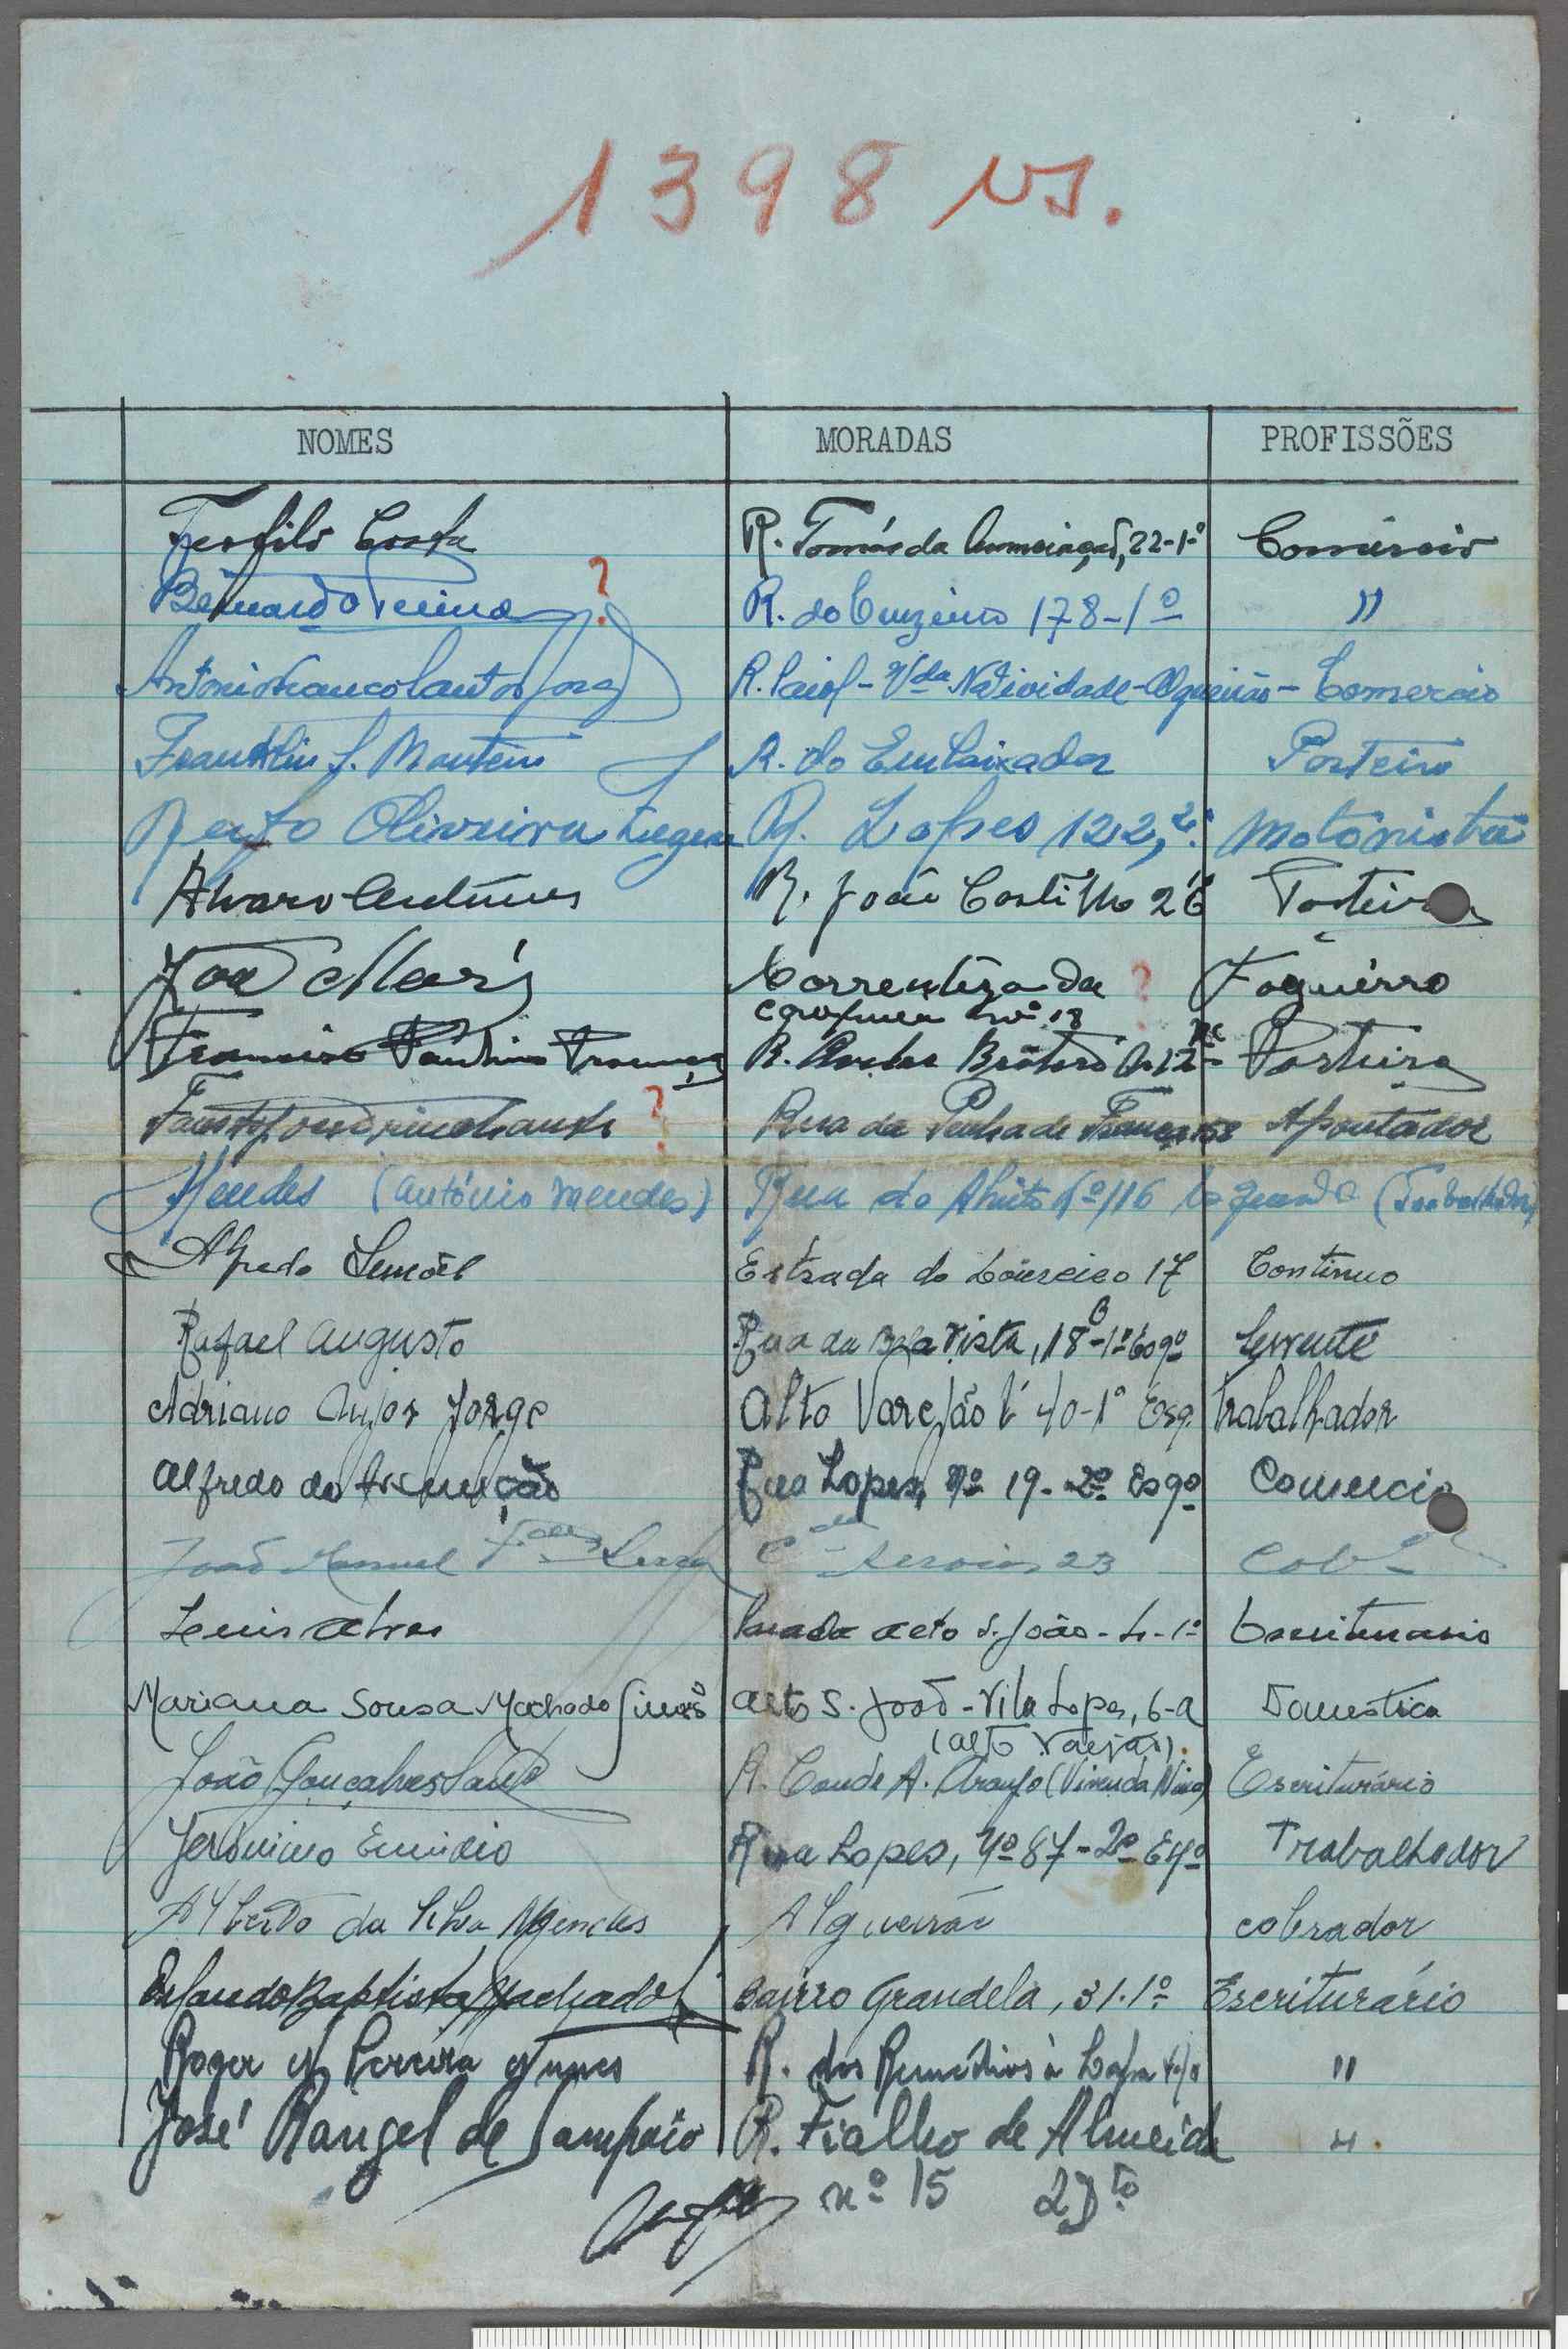 1398 vs.
NOMES MORADAS PROFISSÕES
Teofilo Costa R. Tomás da Anunciação, 22-1º Comércio
Bernardo ? R. do Cruzeiro 178-1º "
Antonio R. Paiol - Vda Natividade - Algueirão - Comercio
Franklin J. Martins R. do Embaixador Porteiro
Oliveira R. Lopes 122, 2º Motorista
Alvaro Antunes R. João Castilho 26 Porteiro
João Correnteza da ? Fogueiro
nº 18
Francisco R. Brótero Porteiro
Fausto ? Rua da Penha de França 158 Apontador
Mendes (António Mendes) Rua do Nº 116 (Trabalhador)
Alfredo Estrada do Loureiro 17 Continuo
Rafael Augusto Rua da Boa Vista, 18 B-1º Esqº Servente
Adriano Anjos Jorge Alto Varejão 40-1º Esq. trabalhador
Alfredo da Assunção Rua Lopes, nº 19-2º Esqº Comercio
João Manuel Cda 23 Cobr
Luis Alves Rua do Alto S. João-4-1º Escriturario
Mariana Sousa Machado Simões Alto S. João - Vila Lopes, 6-A Domestica
(Alto Varejão).
João Gonçalves R. Conde A. Araujo (Vivenda ) Escriturário
Jerónimo Emidio Rua Lopes, nº 87-2º Esqº Trabalhador
Alberto da Silva Mendes Algueirão cobrador
Orlando Baptista Machado Bairro Grandela, 31.1º Escriturário
Roger N Pereira Nunes R. dos Remédios à Lapa "
José Rangel de Sampaio R. Fialho de Almeida " .
nº 15 2 Dto